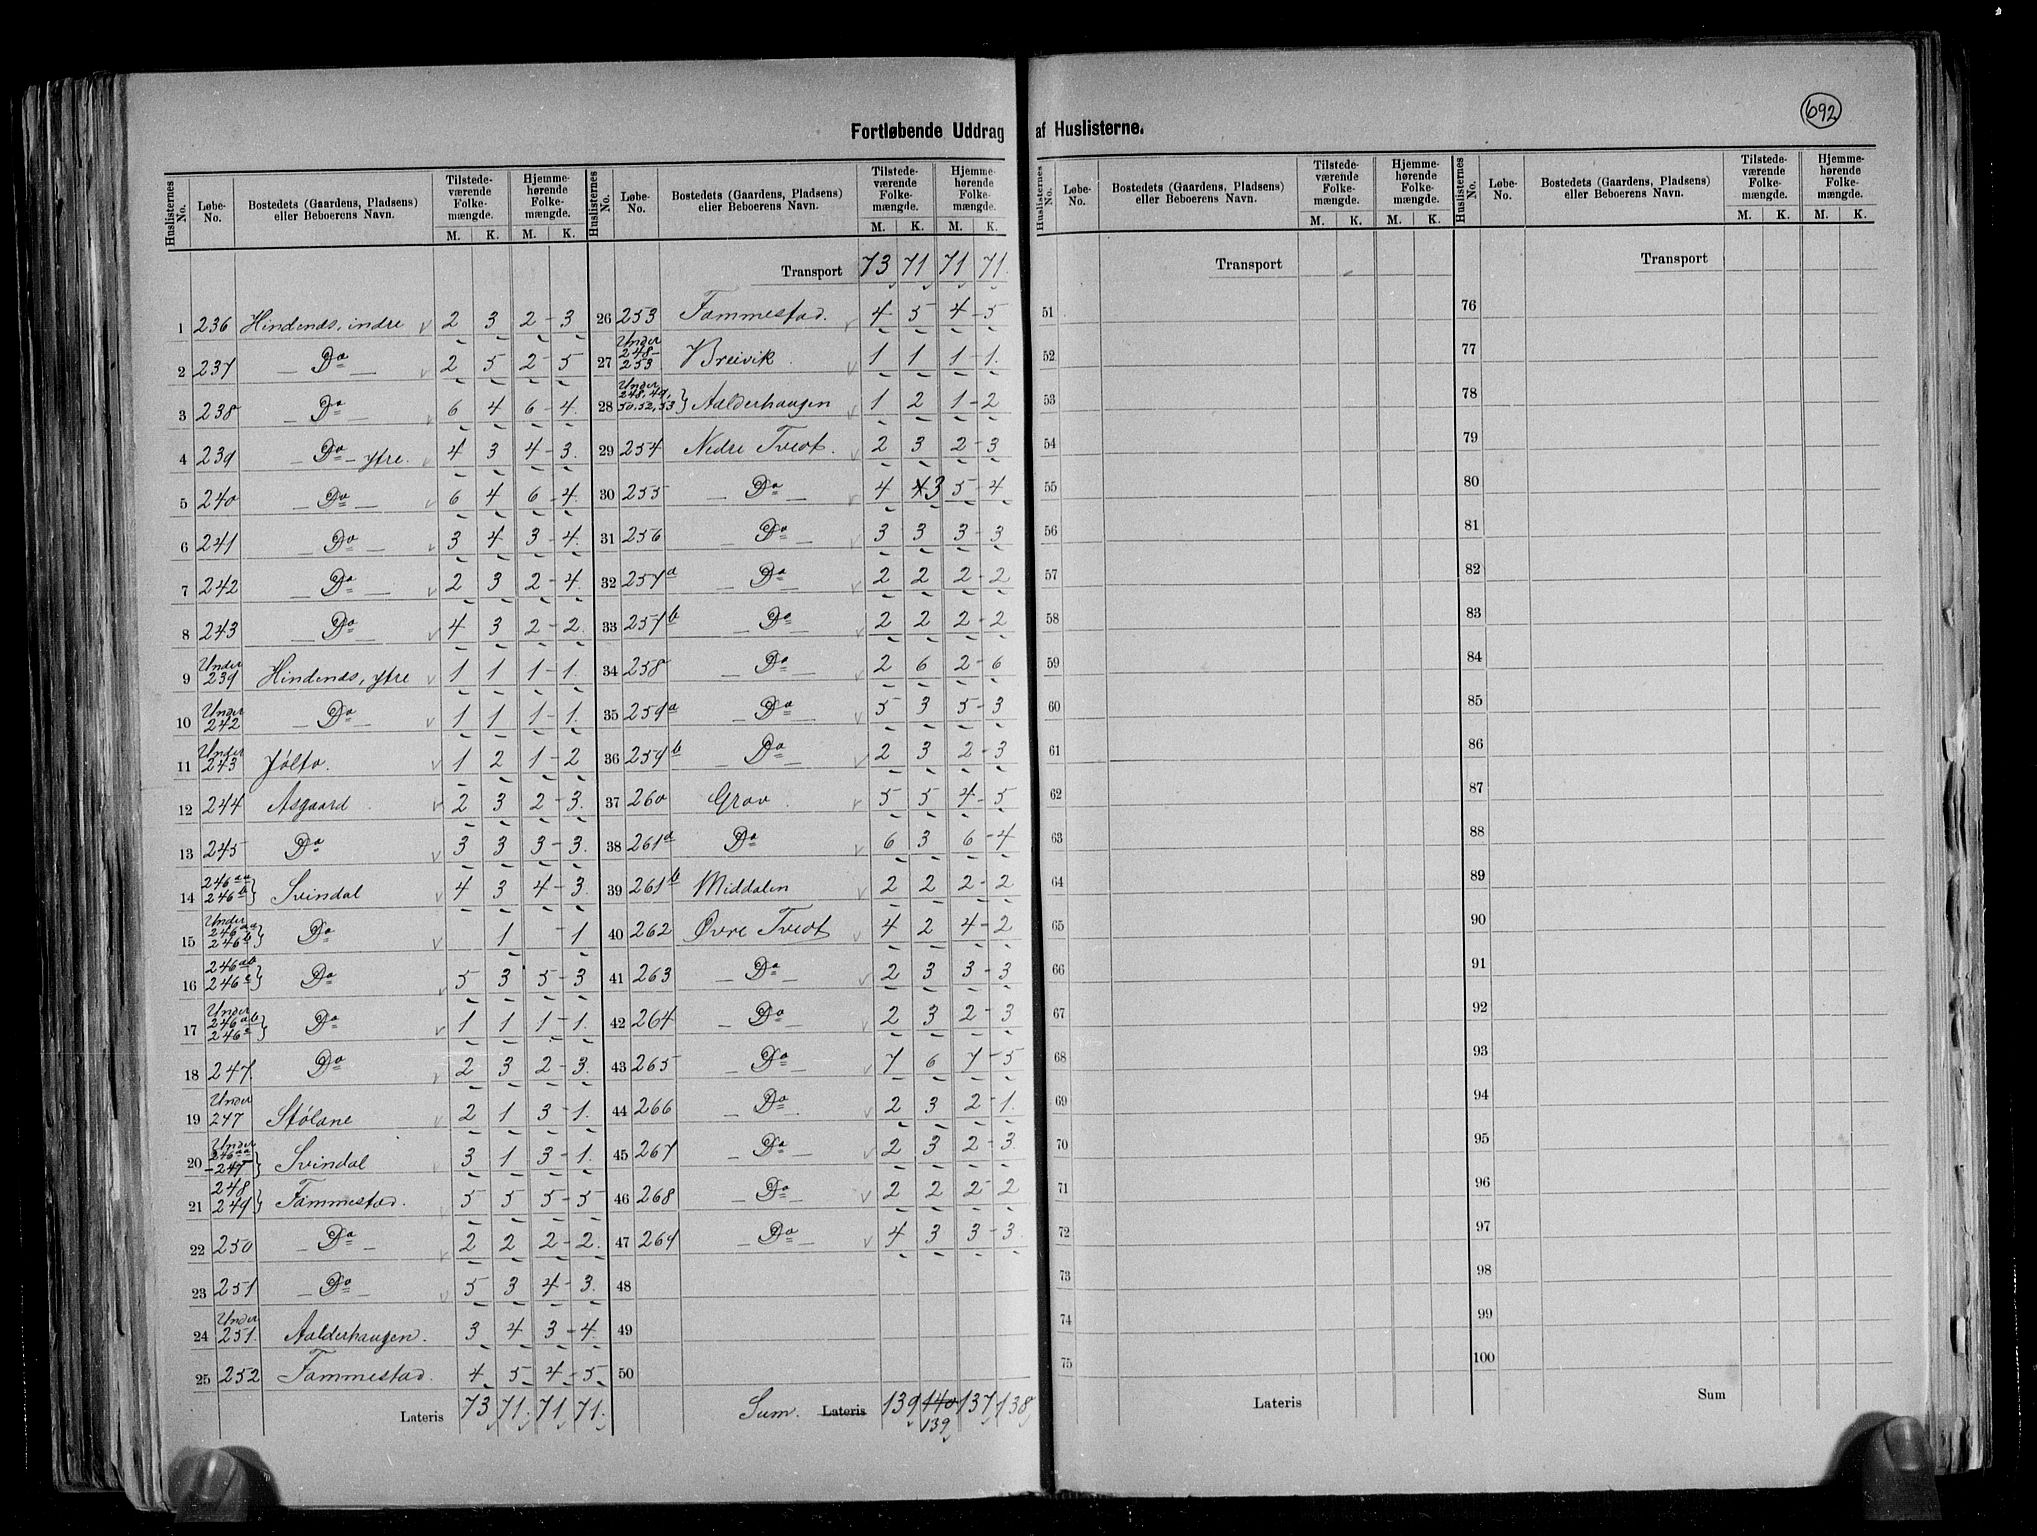 692
Fortløbende Uddrag af Huslisterne.
Huslisternes No. Løbe-No. Bostedets (Gaardens, Pladsens) eller Beboerens Navn. Tilstedeværende Folkemængde. M. K. Hjemmehørende Folkemængde. M. K.
1 236 Hindenæs, indre 2 3 2 - 3
2 237 — Do — 2 5 2 - 5
3 238 Do — 6 4 6 - 4.
4 239 — Do — ytre. 4 3 4 - 3.
5 240 — Do — 6 4 6 - 4.
6 241 — Do — 3 4 3 - 4.
7 242 — Do — 2 3 2 - 4.
8 243 — Do — 4 3 2 - 2.
9 Under 239 Hindenæs, ytre 1 1 1 - 1.
10 Under 242 — Do — 1 1 1 - 1.
11 Under 243 Jølto. 1 2 1 - 2
12 244 Asgaard 2 3 2 - 3.
13 245 Do 3 3 3 - 3.
14 246aa 246b } Svindal 4 3 4 - 3.
15 Under 246aa 246b } Do 1 - 1
16 246ab 246c } Do 5 3 5 - 3
17 Under 246ab 246c } Do 1 1 1 - 1.
18 247. Do 2 3 2 - 3.
19 Under 247 Stølane 2 1 3 - 1.
20 Under 246aa - 247 } Svindal 3 1 3 - 1.
21 248 249 } Fammestad. 5 5 5 - 5
22 250 — Do — 2 2 2 - 2.
23 251 — Do — 5 3 4 - 3.
24 Under 251. Aalderhaugen. 3 4 3 - 4.
25 252 Fammestad. 4 5 4 - 5
Lateris 73 71. 71 71.
Huslisternes No. Løbe-No. Bostedets (Gaardens, Pladsens) eller Beboerens Navn. Tilstedeværende Folkemængde. M. K. Hjemmehørende Folkemængde. M. K.
Transport 73 71 71 71.
26 253 Fammestad. 4 5 4 - 5
27 Under 248- 253 Breivik 1 1 1 - 1.
28 Under 248, 49, 50, 52, 53 } Aalderhaugen 1 2 1 - 2
29 254 Nedre Tvedt. 2 3 2 - 3
30 255 — Do — 4 4 3 5 - 4
31 256 — Do — 3 3 3 - 3
32 257a — Do — 2 2 2 - 2
33 257b — Do — 2 2 2 - 2
34 258 — Do — 2 6 2 - 6
35 259a — Do — 5 3 5 - 3
36 259b — Do — 2 3 2 - 3
37 260 Grav. 5 5 4 - 5
38 261a Do 6 3 6 - 4
39 261b Middalen 2 2 2 - 2
40 262 Øvre Tvedt 4 2 4 - 2
41 263 — Do — 2 3 3 - 3
42 264 — Do — 2 3 2 - 3
43 265 — Do — 7 6 7 - 5
44 266 — Do — 2 3 2 - 1.
45 267 — Do — 2 3 2 - 3.
46 268 — Do — 2 2 2 - 2
47 269 — Do — 4 3 3 - 3.
48
49
50
Sum. Lateris 139 140 137 138
139
Huslisternes No. Løbe-No. Bostedets (Gaardens, Pladsens) eller Beboerens Navn. Tilstedeværende Folkemængde. M. K. Hjemmehørende Folkemængde. M. K.
Transport
51
52
53
54
55
56
57
58
59
60
61
62
63
64
65
66
67
68
69
70
71
72
73
74
75
Lateris
Huslisternes No. Løbe-No. Bostedets (Gaardens, Pladsens) eller Beboerens Navn. Tilstedeværende Folkemængde. M. K. Hjemmehørende Folkemængde. M. K.
Transport
76
77
78
79
80
81
82
83
84
85
86
87
88
89
90
91
92
93
94
95
96
97
98
99
100
Sum